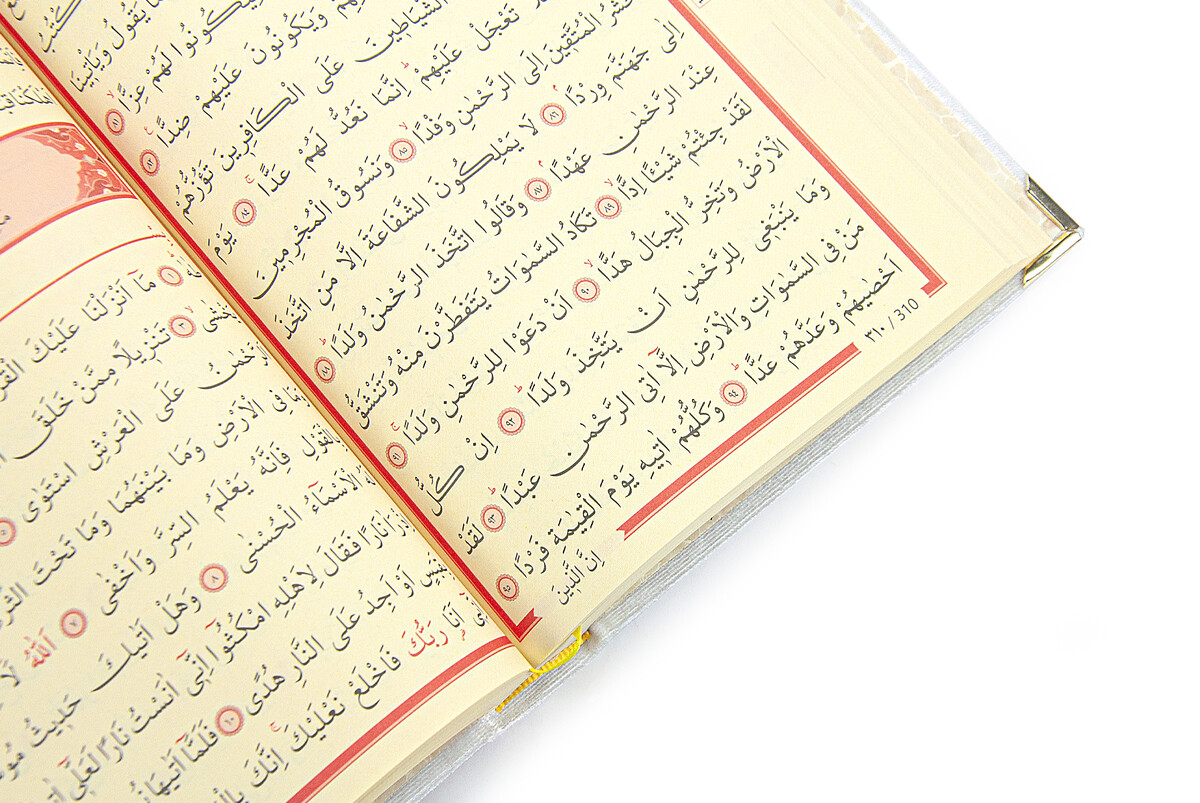 يَقُولُ وَيَأْتِينَا
لِيَكُونُوا لَهُمْ عِزًّا ﴿٨١﴾
وَيَكُونُونَ عَلَيْهِمْ ضِدًّا ﴿٨٢﴾
الشَّيَاطِينَ عَلَى الْكَافِرِينَ تَؤُزُّهُمْ
تَعْجَلْ عَلَيْهِمْ اِنَّمَا نَعُدُّ لَهُمْ عَدًّا ﴿٨٤﴾ يَوْمَ
نَحْشُرُ الْمُتَّقِينَ اِلَى الرَّحْمٰنِ وَفْدًا ﴿٨٥﴾ وَنَسُوقُ الْمُجْرِمِينَ
اِلٰى جَهَنَّمَ وِرْدًا ﴿٨٦﴾ لَا يَمْلِكُونَ الشَّفَاعَةَ اِلَّا مَنِ اتَّخَذَ
عِنْدَ الرَّحْمٰنِ عَهْدًا ﴿٨٧﴾ وَقَالُوا اتَّخَذَ الرَّحْمٰنُ وَلَدًا ﴿٨٨﴾
لَقَدْ جِئْتُمْ شَيْـًٔا اِدًّا ﴿٨٩﴾ تَكَادُ السَّمٰوَاتُ يَتَفَطَّرْنَ مِنْهُ وَتَنْشَقُّ
الْاَرْضُ وَتَخِرُّ الْجِبَالُ هَدًّا ﴿٩٠﴾ اَنْ دَعَوْا لِلرَّحْمٰنِ وَلَدًا ﴿٩١﴾
وَمَا يَنْبَغِى لِلرَّحْمٰنِ اَنْ يَتَّخِذَ وَلَدًا ﴿٩٢﴾ اِنْ كُلُّ
مَنْ فِى السَّمٰوَاتِ وَالْاَرْضِ اِلَّٓا اٰتِى الرَّحْمٰنِ عَبْدًا ﴿٩٣﴾ لَقَدْ
اَحْصٰيهُمْ وَعَدَّهُمْ عَدًّا ﴿٩٤﴾ وَكُلُّهُمْ اٰتِيهِ يَوْمَ الْقِيٰمَةِ فَرْدًا ﴿٩٥﴾
٣١٠ / 310
اِنَّ الَّذِينَ
﴿١﴾ مَٓا اَنْزَلْنَا عَلَيْكَ
﴿٣﴾ تَنْزِيلًا مِمَّنْ خَلَقَ
اَلرَّحْمٰنُ عَلَى الْعَرْشِ اسْتَوٰى ﴿٥﴾
وَمَا فِى الْاَرْضِ وَمَا بَيْنَهُمَا وَمَا تَحْتَ الثَّرٰى
بِالْقَوْلِ فَاِنَّهُ يَعْلَمُ السِّرَّ وَاَخْفٰى ﴿٧﴾ اَللّٰهُ لَٓا
الْاَسْمَٓاءُ الْحُسْنٰى ﴿٨﴾ وَهَلْ اَتٰيكَ حَدِيثُ
نَارًا فَقَالَ لِاَهْلِهِ امْكُثُٓوا اِنِّٓى اٰنَسْتُ نَارًا لَعَلِّٓى
اَوْ اَجِدُ عَلَى النَّارِ هُدًى ﴿١٠﴾ فَلَمَّٓا اَتٰيهَا
اَنَا۬ رَبُّكَ فَاخْلَعْ نَعْلَيْكَ اِنَّكَ